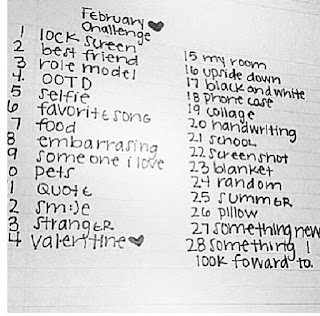 February
Challenge
1 lock screen
2 best friend
3 role model
4. OOTD
5 selfie
6 favorite song
7 food
8 embarrasing
9 someone i love
0 pets
1 QUOTE
2 smile
3 stranger
4 valentine
15 my room
16 upside down
17 black and white
18 phone case
19 collage
20 handwriting
21 school
22 screenshot
23 blanket
24 random
25 summer
26 pillow
27 something new
28 something I
look foward to.